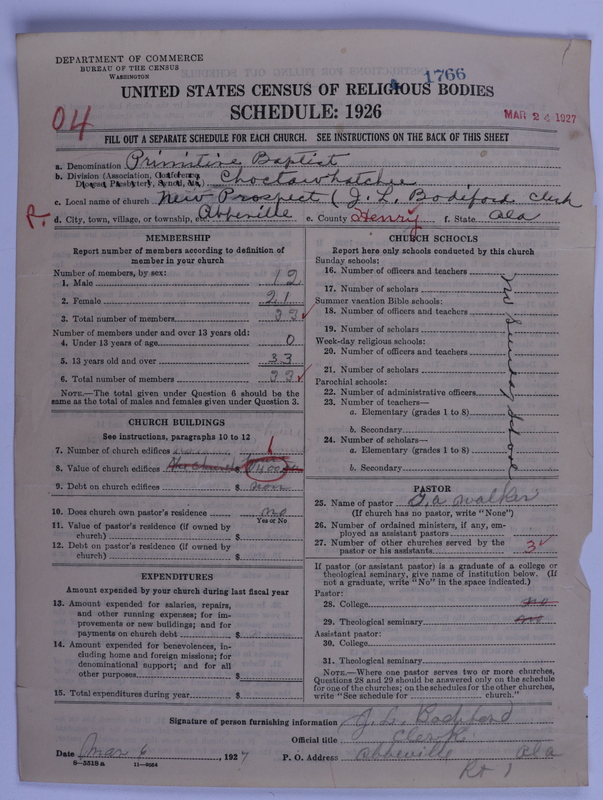 DEPARTMENT OF COMMERCE
BUREAU OF THE CENSUS
WASHINGTON
1766
UNITED STATES CENSUS OF RELIGIOUS BODIES
SCHEDULE: 1926
04
MAR 24 1927
FILL OUT A SEPARATE SCHEDULE FOR EACH CHURCH. SEE INSTRUCTIONS ON THE BACK OF THIS SHEET
a. Denomination Primitive Baptist
b. Division (Association, Conference, Diocese, Presbytery, Synod, etc.) Choctawhatchie
c. Local name of church New Prospect (J. L. Bodiford Clerk
R. d. City, town, village, or township, etc. Abbeville e. County Henry f. State Ala
MEMBERSHIP
Report number of members according to definition of
member in your church
Number of members, by sex:
1. Male 12
2. Female 21
3. Total number of members 33
Number of members under and over 13 years old:
4. Under 13 years of age 0
5. 13 years old and over 33
6. Total number of members 33
NOTE.—The total given under Question 6 should be
same as the total of males and females given under Question 3.
CHURCH BUILDINGS
See instructions, paragraphs 10 to 12
7. Number of church edifices 1
8. Value of church edifices $ 400
9. Debt on church edifices $ non
10. Does church own pastor's residence no
Yes or No
11. Value of pastor's residence (if owned by
church) $
12. Debt on pastor's residence (if owned by
church) $
EXPENDITURES
Amount expended by your church during last fiscal year
13. Amount expended for salaries, repairs,
and other running expenses; for im-
provements or new buildings; and for
payments on church debt $
14. Amount expended for benevolences, in-
cluding home and foreign missions; for
denominational support; and for all
other purposes $
15. Total expenditures during year $
CHURCH SCHOOLS
Report here only schools conducted by this church
Sunday schools:
16. Number of officers and teachers
17. Number of scholars
Summer vacation Bible schools:
18. Number of officers and teachers
19. Number of scholars
Week-day religious schools:
20. Number of officers and teachers
21. Number of scholars
Parochial schools:
22. Number of administrative officers
23. Number of teachers—
a. Elementary (grades 1 to 8)
b. Secondary
24. Number of scholars—
a. Elementary (grades 1 to 8)
b. Secondary
no Sunday School
PASTOR
25. Name of pastor G. A. Walker
(If church has no pastor, write "None")
26. Number of ordained ministers, if any, em-
ployed as assistant pastors
27. Number of other churches served by the
pastor or his assistants 3
If pastor (or assistant pastor) is a graduate of a college or
theological seminary, give name of institution below. (If
not a graduate, write "No" in the space indicated.)
Pastor:
28. College no
29. Theological seminary no
Assistant pastor:
30. College
31. Theological seminary
NOTE.—Where one pastor serves two or more churches,
Questions 28 and 29 should be answered only on the schedule
for one of the churches; on the schedules for the other churches,
write "See schedule for church."
Signature of person furnishing information J. L. Bodiford
Official title Clerk
Date Mar 6, 1927 P. O. Address Abbeville Ala
8—5518a 11—9084
Rt 1